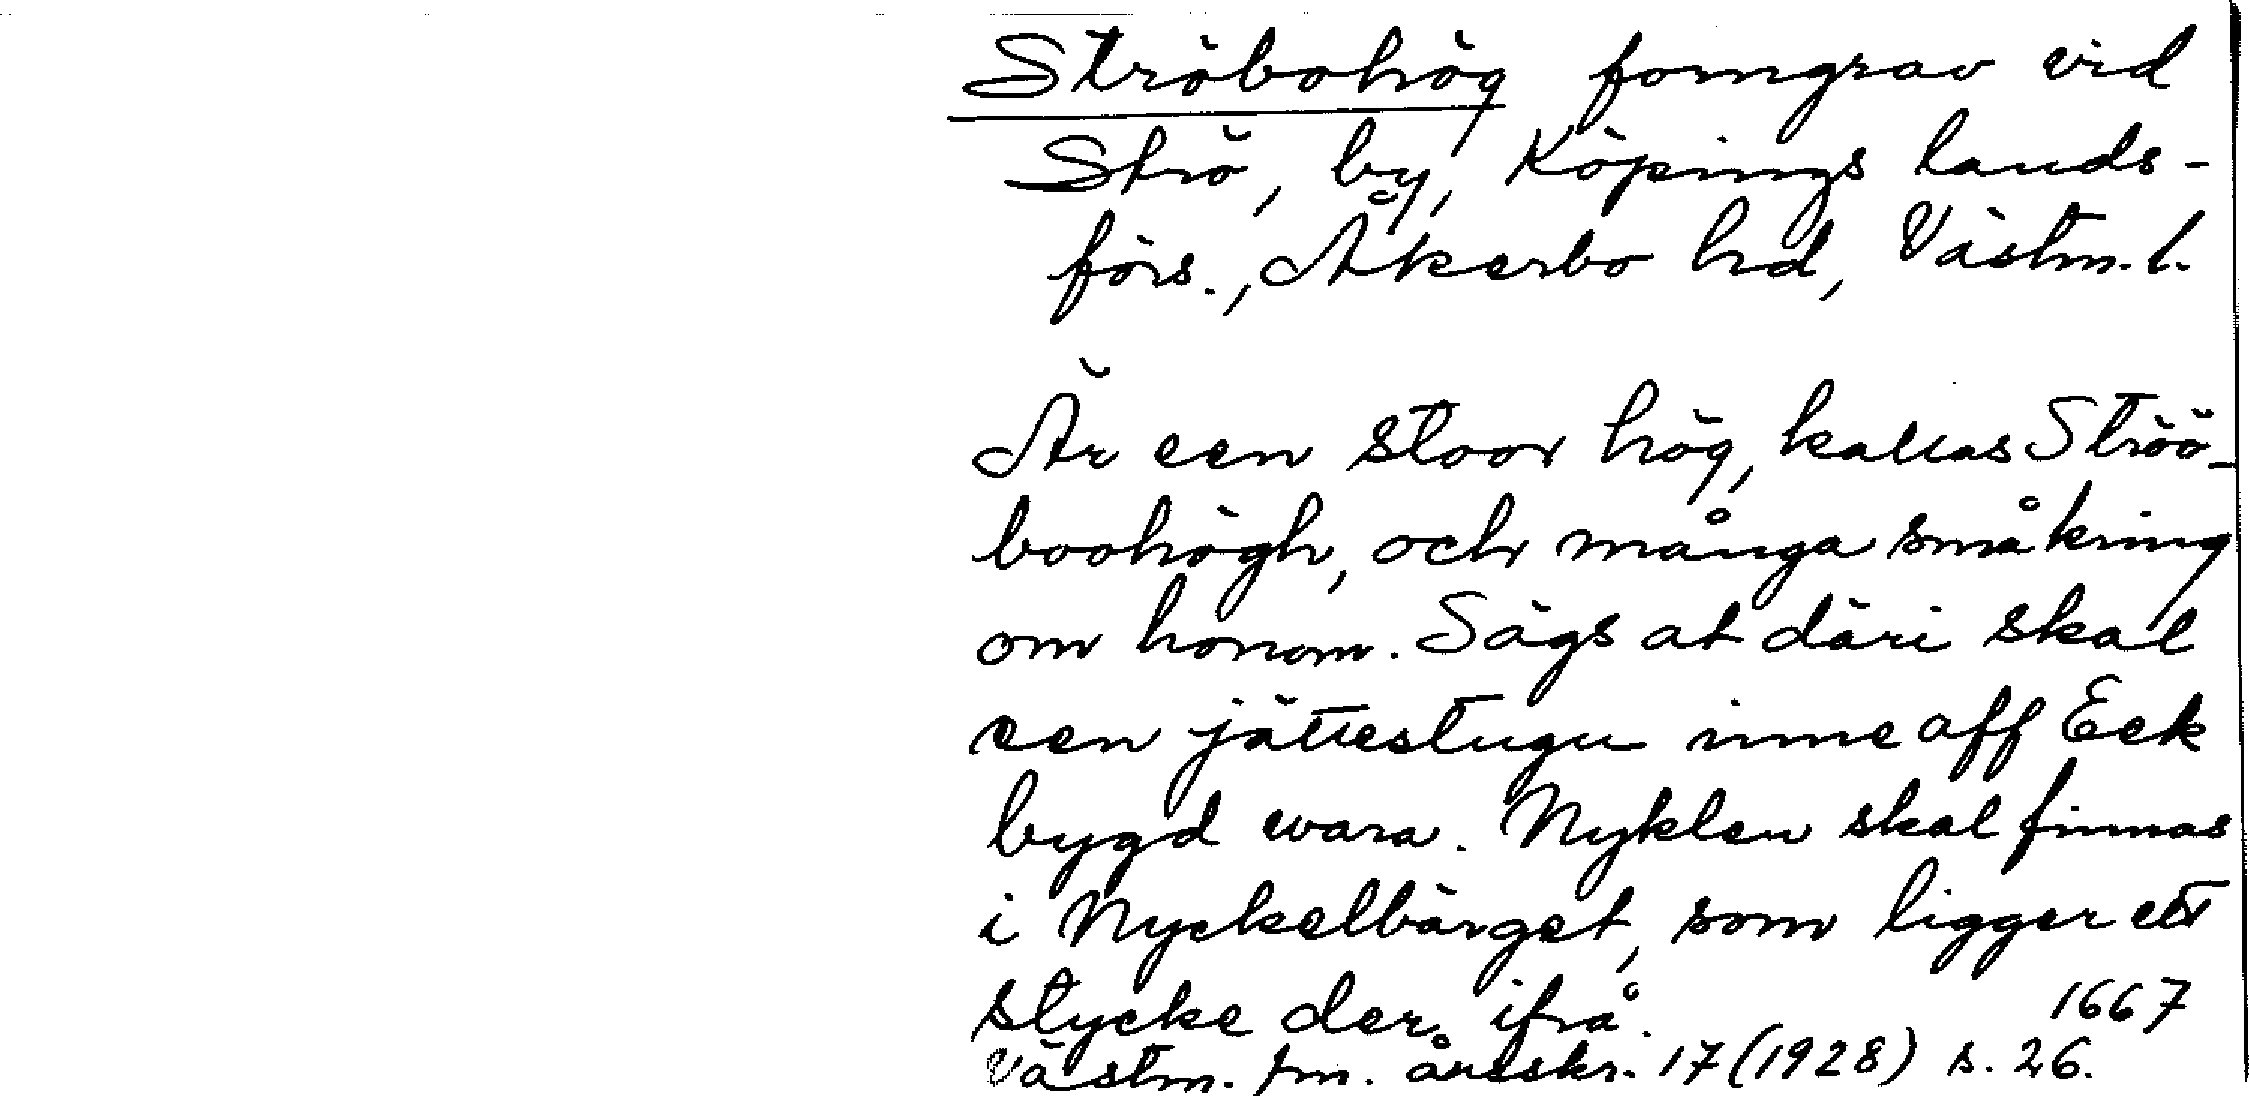 Ströbohög forngrav vid
Strö, by, Köpings lands-
förs., Åkerbo hd, Västm. l.
Är een stoor hög, kallas Ströö-
boohögh, och många små kring
om honom. Sägs at däri skal
een jättestugu inne aff Eek
bygd wara. Nyklen skal finnas
i Nyckelbärget, som ligger ett
stycke der ifrå. 1667
Västm. fm. årsskr. 17 (1928) s. 26.